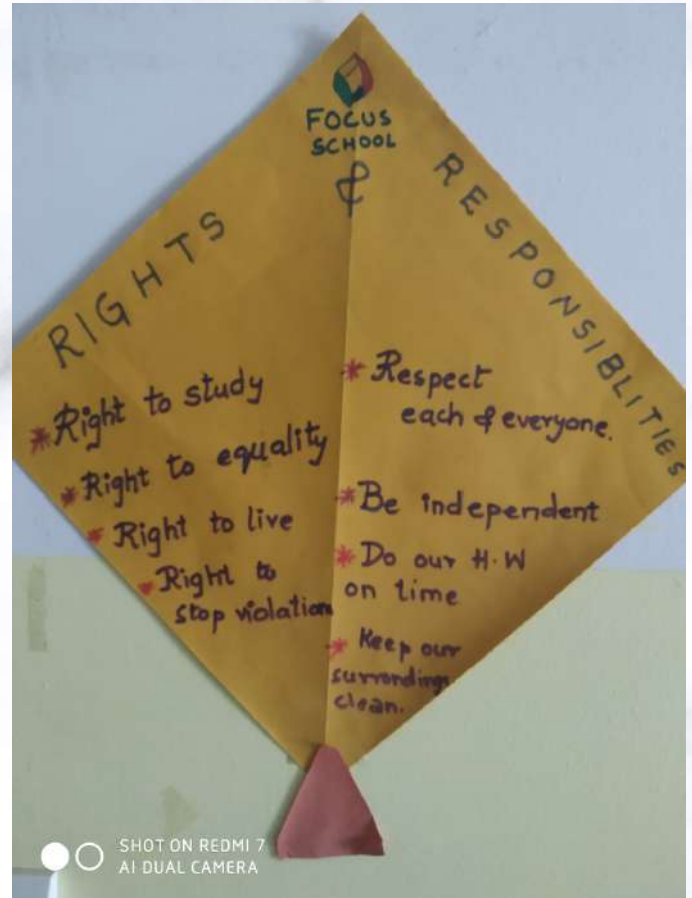 FOCUS
SCHOOL
RIGHTS & RESPONSIBLITIES
* Right to study
* Right to equality
* Right to live
* Right to
stop violation
* Respect
each & everyone.
* Be independent
* Do our H.W
on time
* Keep our
surrondings
clean.
SHOT ON REDMI 7
AI DUAL CAMERA